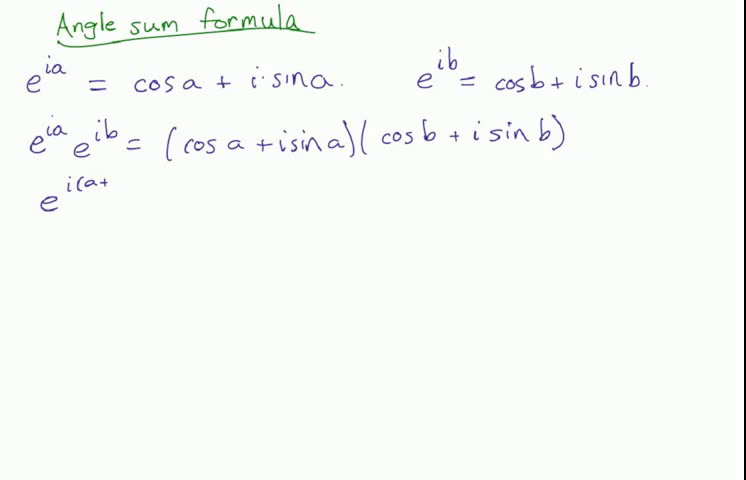 Angle sum formula
e^{ia} = cos a + i·sin a. e^{ib} = cos b + i sin b.
e^{ia} e^{ib} = (cos a + i sin a)(cos b + i sin b)
e^{i(a+